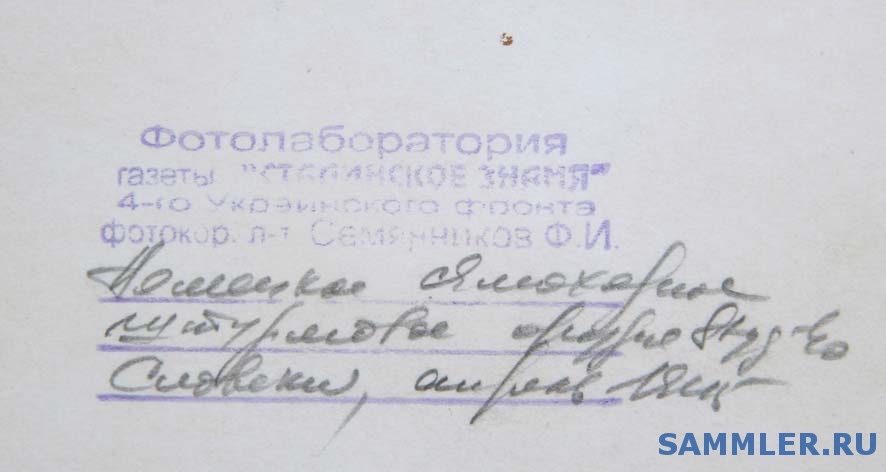 Фотолаборатория
газеты "СТАЛИНСКОЕ ЗНАМЯ"
4-го Украинского фронта
фотокор. л-т Семянников Ф.И.
Немецкое
штурмовое орудие
Словакия, апрель
SAMMLER.RU